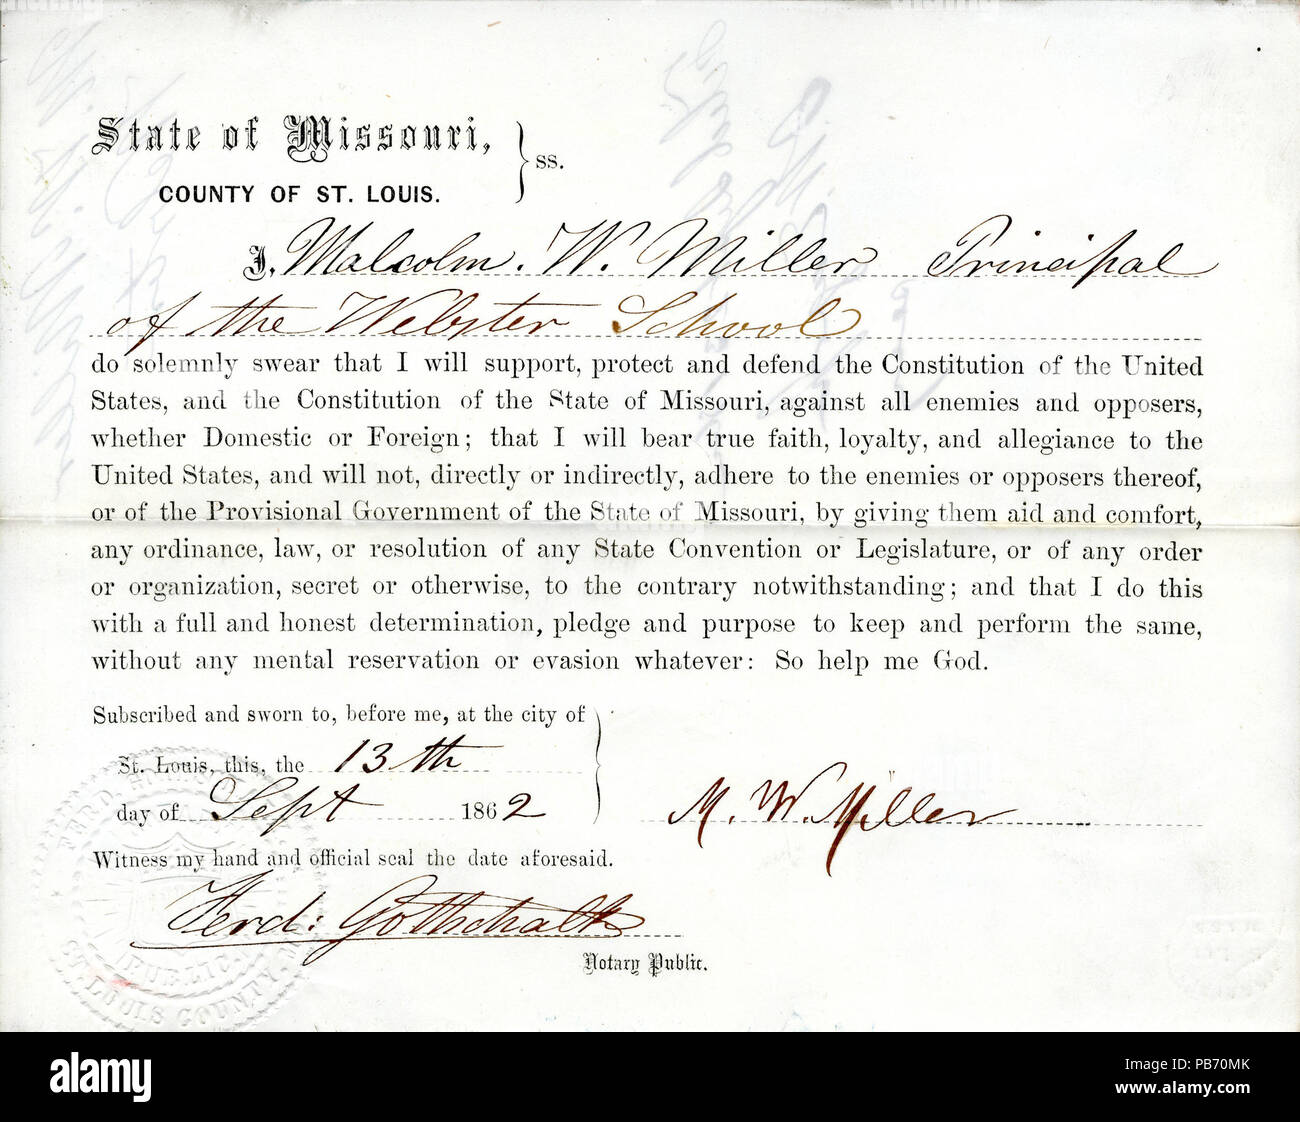 State of Missouri,
ss.
COUNTY OF ST. LOUIS.
I, Malcolm. W. Miller Principal
of the Webster School
do solemnly swear that I will support, protect and defend the Constitution of the United
States, and the Constitution of the State of Missouri, against all enemies and opposers,
whether Domestic or Foreign; that I will bear true faith, loyalty, and allegiance to the
United States, and will not, directly or indirectly, adhere to the enemies or opposers thereof,
or of the Provisional Government of the State of Missouri, by giving them aid and comfort,
any ordinance, law, or resolution of any State Convention or Legislature, or of any order
or organization, secret or otherwise, to the contrary notwithstanding; and that I do this
with a full and honest determination, pledge and purpose to keep and perform the same,
without any mental reservation or evasion whatever: So help me God.
Subscribed and sworn to, before me, at the city of
St. Louis, this, the 13th
day of Sept 1862
M. W. Miller
Witness my hand and official seal the date aforesaid.
Ferd: Gottschalk
Notary Public.
FERD.
PUBLIC
ST. LOUIS COUNTY, MO
alamy
Image ID: PB70MK
www.alamy.com